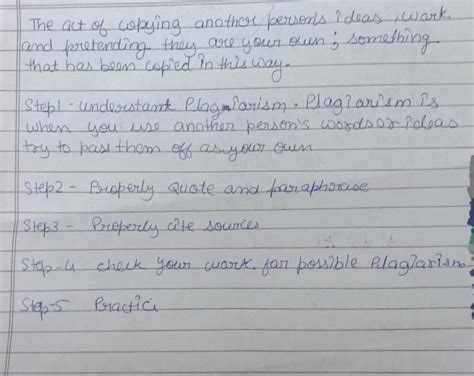 The act of copying another person's ideas, work
and pretending they are your own; something
that has been copied in this way.
Step1 - understant Plagiarism. Plagiarism is
when you use another person's words or ideas
try to pass them off as your own
Step2 - Properly Quote and paraphorase
Step3 - Properly cite sources
Step-4 check your work for possible Plagiarism
Step-5 Practici